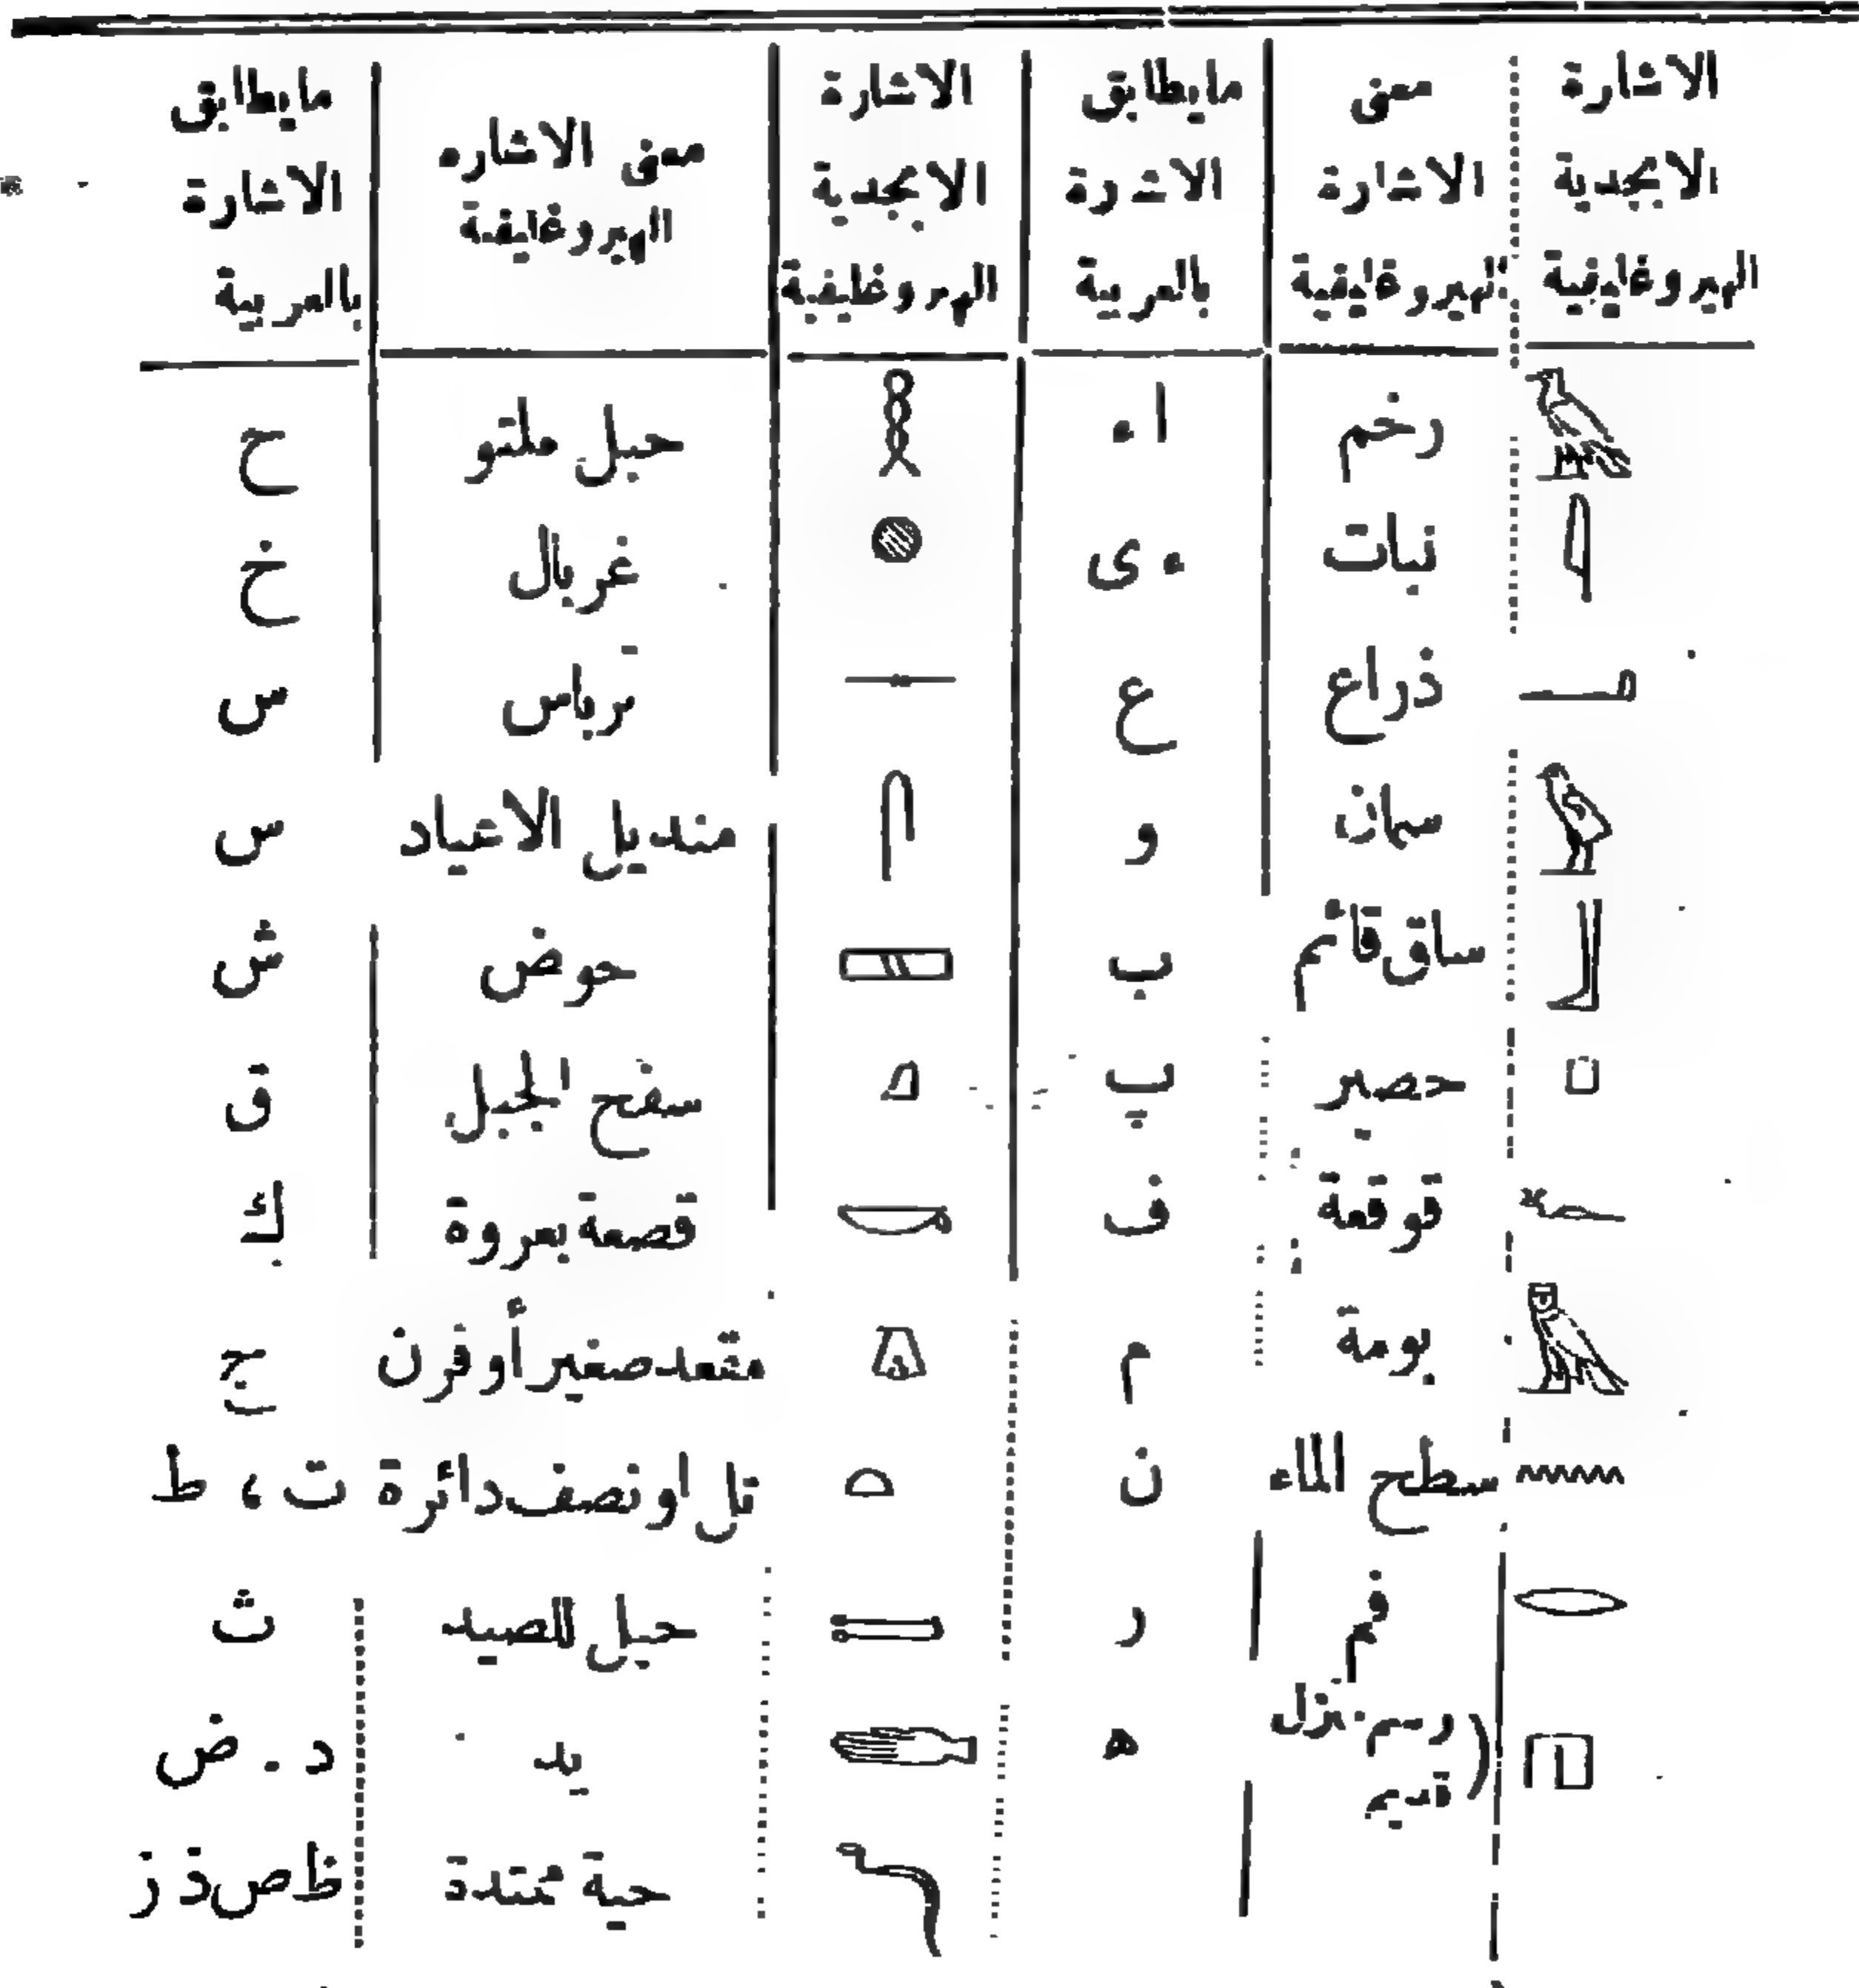 الاشارة الابجدية الهيروغليفية معنى الاشارة الهيروغليفية مايطابق الاشرة بالعربية الاشارة الابجدية الهيروغليفية معنى الاشاره الهيروغليفية مايطابق الاشارة بالعربية
𓄿 رخم ا ء 𓎛 حبل ملتو ح
𓇋 نبات ء ى 𓐍 غربال خ
𓂝 ذراع ع 𓊃 ترباس س
𓅱 سمان و 𓋴 منديل الاعياد س
𓃀 ساق قائم ب 𓈙 حوض ش
𓊪 حصير پ 𓈎 سفح الجبل ق
𓆑 قوقعة ف 𓎡 قصعة بعروة ك
𓅓 بومة م 𓎼 مقعد صغير أو فرن ج
𓈖 سطح الماء ن 𓏏 تل او نصف دائرة ت ، ط
𓂋 فم ر 𓍿 حبل للصيد ث
𓉔 (رسم منزل قديم ه 𓂧 يد د . ض
𓆓 حية ممتدة ظ ص ذ ز